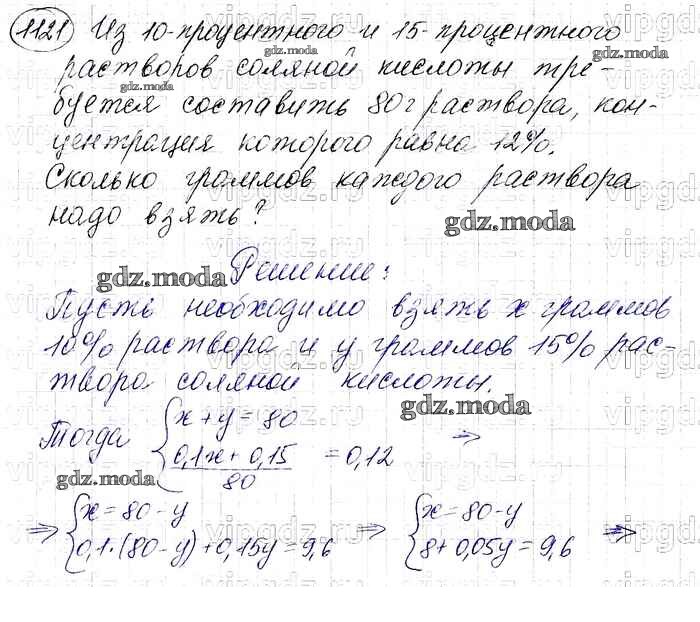 1121 Из 10-процентного и 15-процентного
gdz.moda
растворов соляной кислоты тре-
gdz.moda
буется составить 80 г раствора, кон-
gdz.moda
центрация которого равна 12%.
Сколько граммов каждого раствора
надо взять?
gdz.moda
gdz.moda
Решение:
Пусть необходимо взять x граммов
10% раствора и y граммов 15% рас-
твора соляной кислоты.
gdz.moda
Тогда { x + y = 80
(0,1x + 0,15)/80 = 0,12 ⇒
gdz.moda
⇒ { x = 80 - y
0,1·(80-y) + 0,15y = 9,6
⇒ { x = 80 - y
8 + 0,05y = 9,6 ⇒
vipgdz.ru